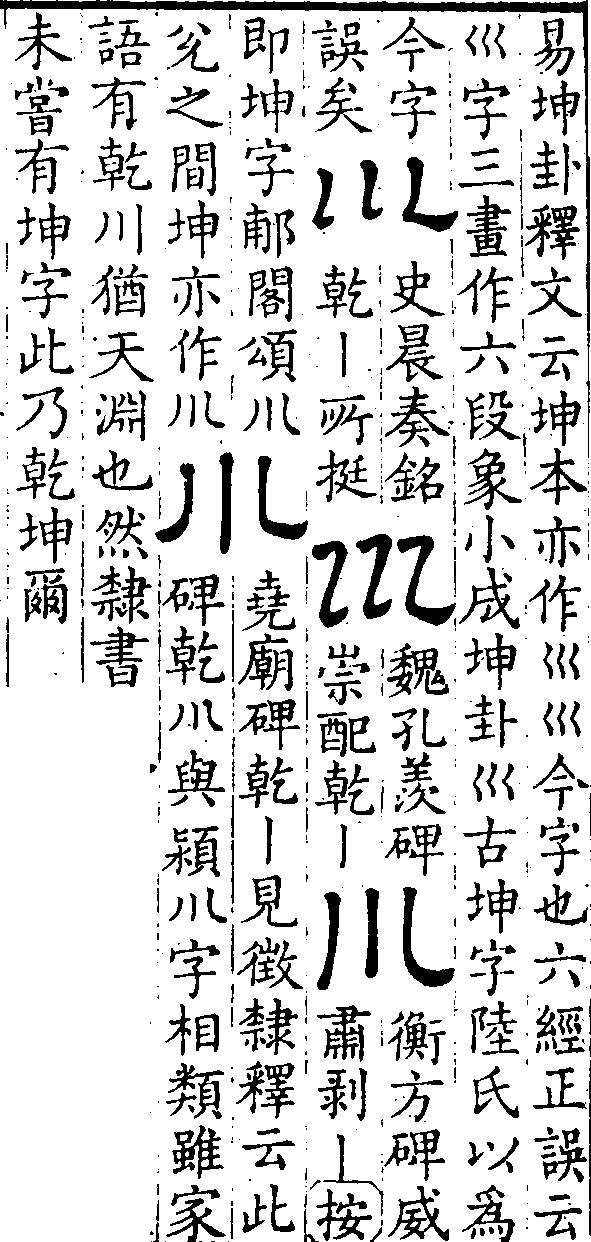 易坤卦釋文云坤本亦作巛巛今字也六經正誤云
巛字三畫作六段象小成坤卦巛古坤字陸氏以爲
今字
誤矣
川
史晨奏銘
乾丨所挺
巛
魏孔羨碑
崇配乾丨
川
衡方碑威
肅剥丨按
即坤字郙閣頌川
兊之間坤亦作川
川
堯廟碑乾丨見徵隸釋云此
碑乾川與頴川字相類雖家
語有乾川猶天淵也然隸書
未嘗有坤字此乃乾坤爾